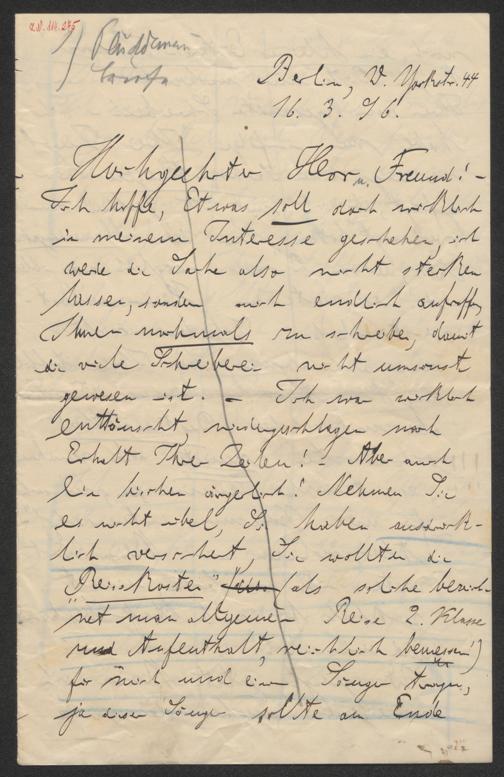 Berlin, W. Yorkstr. 44
16. 3. 96.
Hochgeehrter Herr u. Freund! –
Ich hoffe, Etwas soll doch wirklich
in meinem Interesse geschehen, ich
werde die Sache also nicht stecken
lassen, sondern mich endlich aufraffen,
Ihnen nochmals zu schreiben, damit
die viele Schreiberei nicht umsonst
gewesen ist. – Ich war wirklich
enttäuscht, niedergeschlagen nach
Erhalt Ihrer Zeilen! – Aber auch
ein bischen ärgerlich! Nehmen Sie
es nicht übel, Sie haben ausdrück-
lich versichert, Sie wollten die
"Reisekosten" (als solche bezeich-
net man allgemein Reise 2. Klasse
und Aufenthalt, reichlich bemessen!)
für mich und einen Sänger tragen,
ja dieser Sänger sollte am Ende